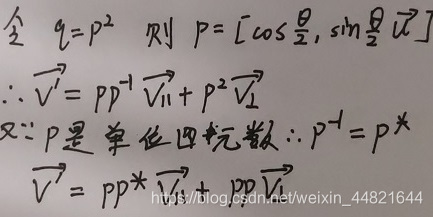 令 q=p² 则 p=[cos θ/2, sin θ/2 u⃗]
∴ v⃗' = pp⁻¹ v⃗∥ + p² v⃗⊥
又∵ p是单位四元数 ∴ p⁻¹=p*
v⃗' = pp* v⃗∥ + pp v⃗⊥
https://blog.csdn.net/weixin_44821644